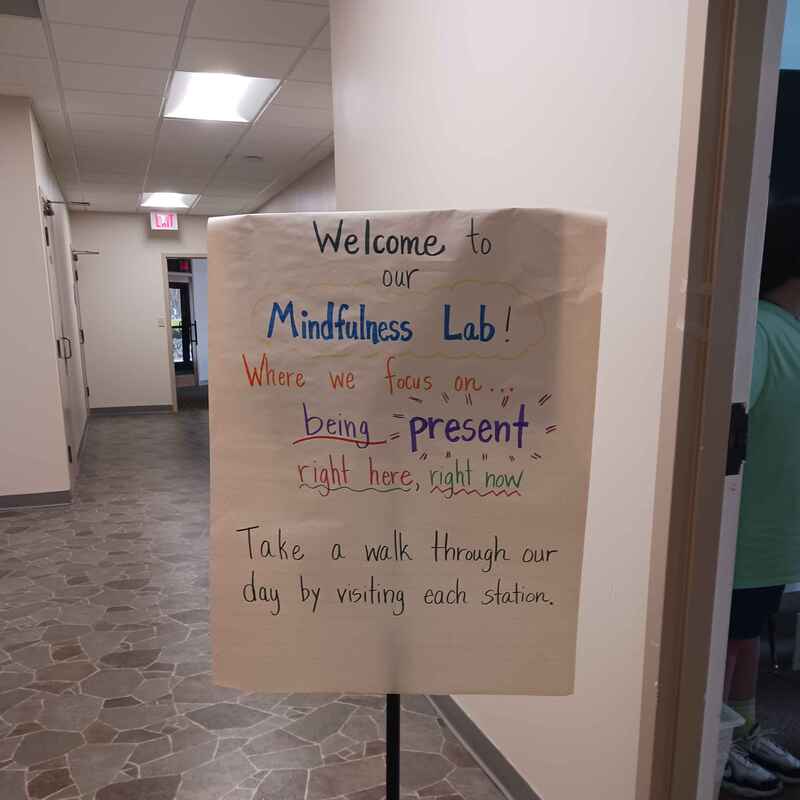 EXIT
Welcome to
our
Mindfulness Lab!
Where we focus on...
being present
right here, right now
Take a walk through our
day by visiting each station.